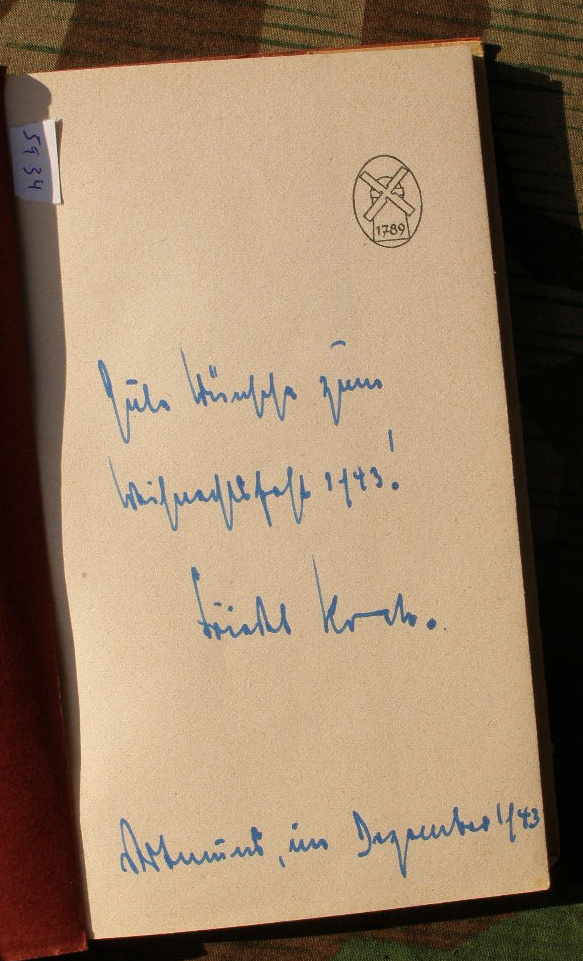 5934
1789
Gute Wünsche zum
Weihnachtsfest 1943!
Dortmund, im Dezember 1943